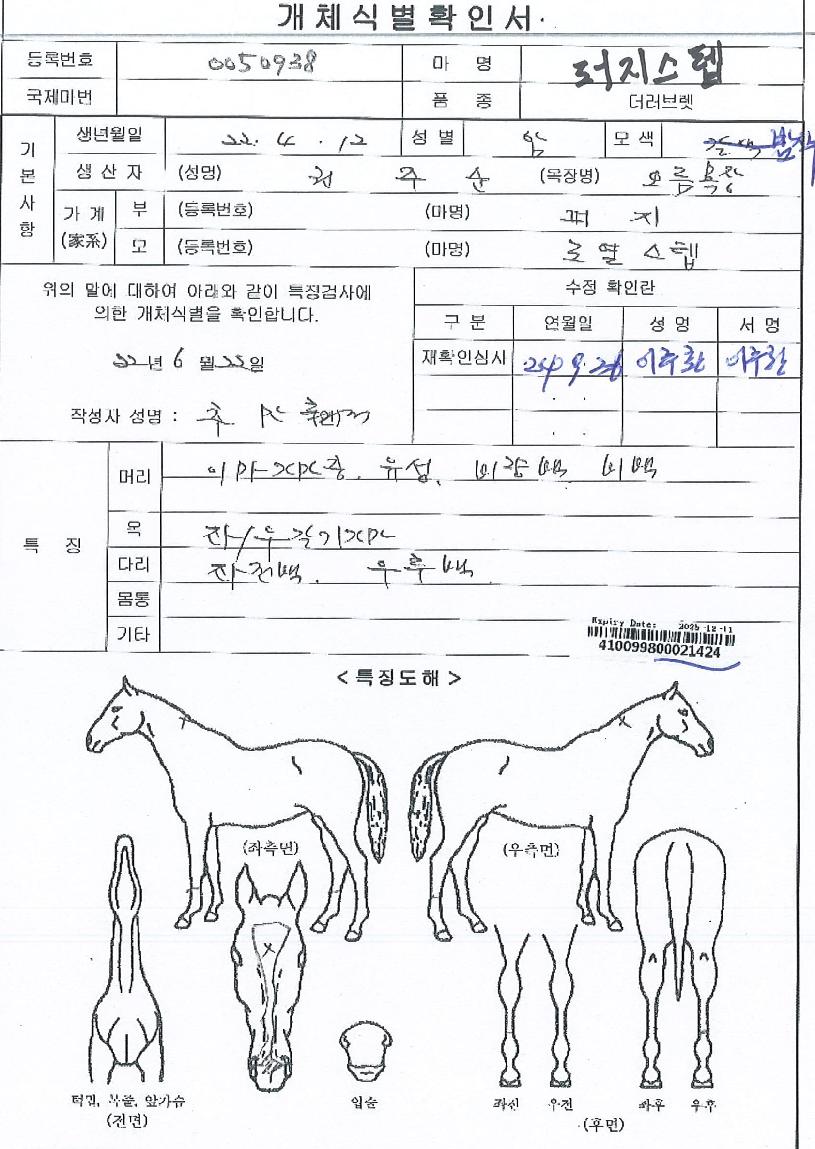 개체식별확인서
등록번호 0050938 마 명 퍼지스텝
국제마번 품 종 더러브렛
기본사항
생년월일 22. 4. 12 성별 암 모색 갈색 밤색
생산자 (성명) 권 주 순 (목장명) 오름목장
가계 (家系) 부 (등록번호) (마명) 퍼 지
모 (등록번호) (마명) 로열 스텝
위의 말에 대하여 아래와 같이 특징검사에
의한 개체식별을 확인합니다.
22년 6월 22일
작성사 성명 :
수정 확인란
구 분 연월일 성 명 서 명
재확인심사 24 9. 26
특 징
머리 유성, 비량백 비백
목 좌/우
다리 좌전백, 우후백
몸통
기타
Expiry Date: 2025-12-11
410099800021424
<특징도해>
(좌측면) (우측면)
턱밑, 목줄, 앞가슴
(전면)
입술
좌전 우전 좌후 우후
(후면)